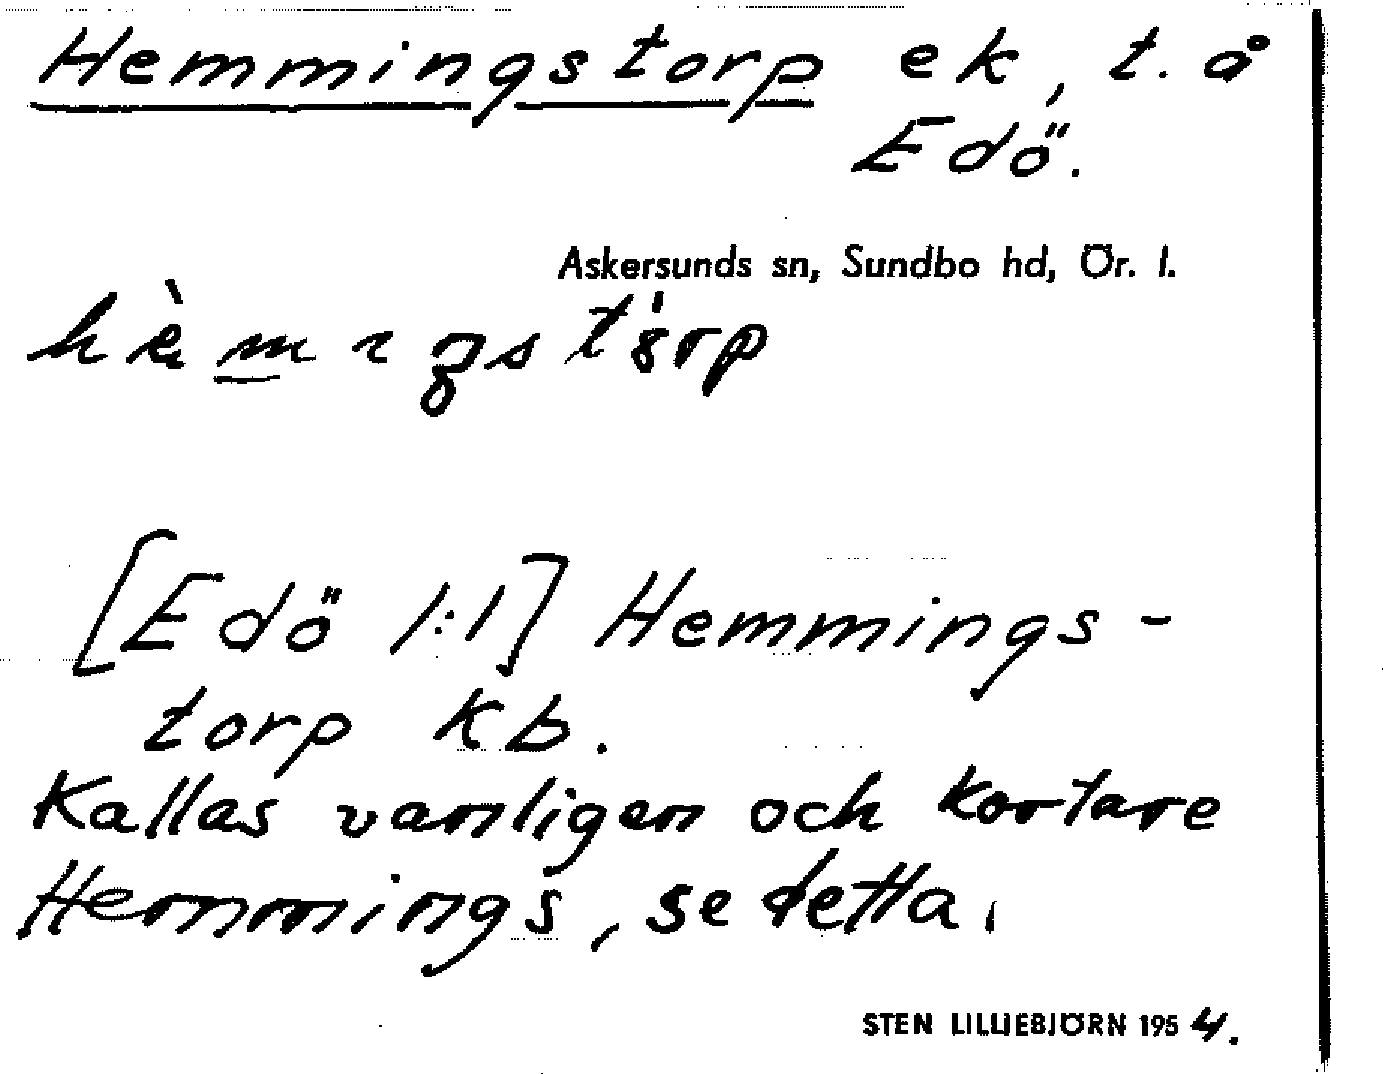 Hemmingstorp ek, t. å
Edö.
Askersunds sn, Sundbo hd, Ör. l.
[Edö 1:1] Hemmings-
torp kb.
Kallas vanligen och kortare
Hemmings, se detta.
STEN LILLIEBJÖRN 1954.